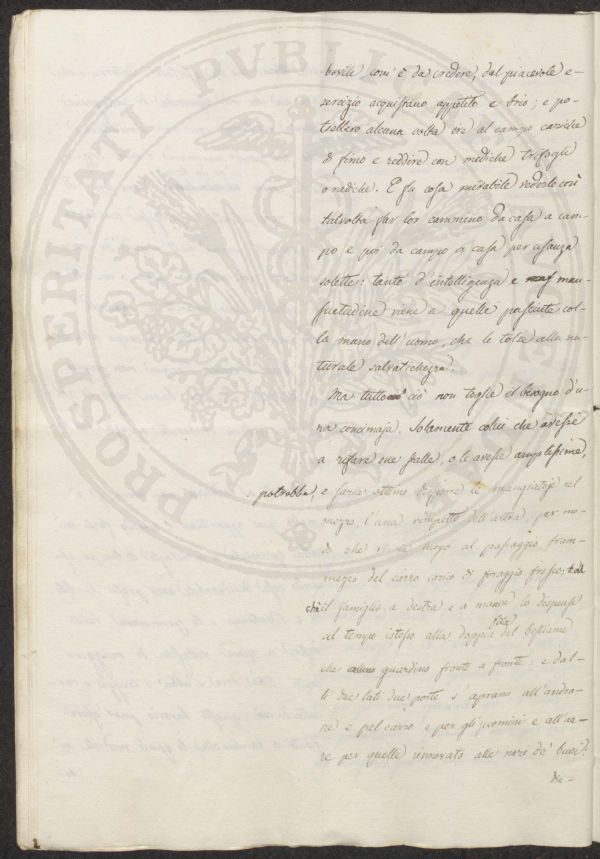 bovili com' è da credere, dal piacevole e-
sercizio acquistano appetito e brio; e po-
trellero alcuna volta ire al campo cariche
di fimo e reddire con mediche trifogli
o radiche. E fu cosa mirabile vederle così
talvolta far lor cammino da casa a cam-
po e poi da campo a casa per usanza
solette: tanto d'intelligenza e man-
suetudine viene a quelle pasciute col-
la mano dell'uomo, che le tolse alla na-
turale salvatichezza.
Ma tutto ciò non toglie il bisogno d'u-
na concimaja. Solamente colui che avesse
a rifare sue stalle, o le avesse amplissime,
potrebbe, e faria ottimo disporre le mangiatoje nel
mezzo, l'una rimpetto dell'altra, per mo-
do che vi sia luogo al passaggio fram-
mezzo del carro carico di foraggio fresco; tal
chè il famiglio a destra e a manca lo dispensi
al tempo istesso alla doppia fila del bestiame
che guardino fronte a fronte: e dal-
li due lati due porte s'aprano all'andro-
ne e pel carro e per gli uomini e all'ae-
re per quelle rinnovato alle nari de' buoi:
die-
PROSPERITATI PUBLICAE